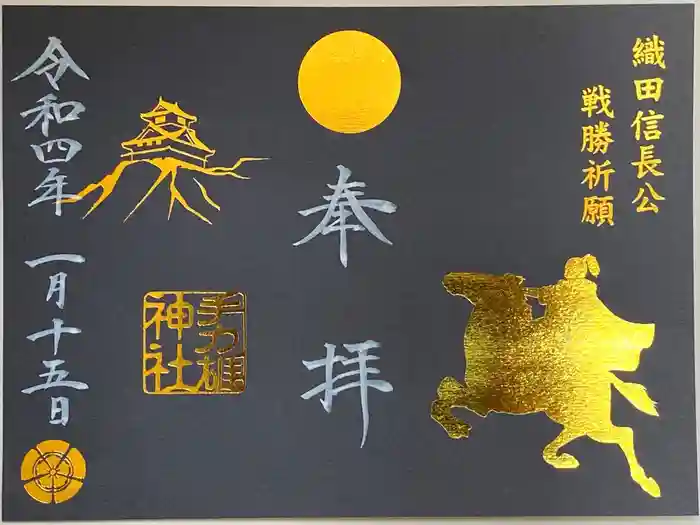 織田信長公
戦勝祈願
奉拝
手力雄
神社
令和四年 一月十五日